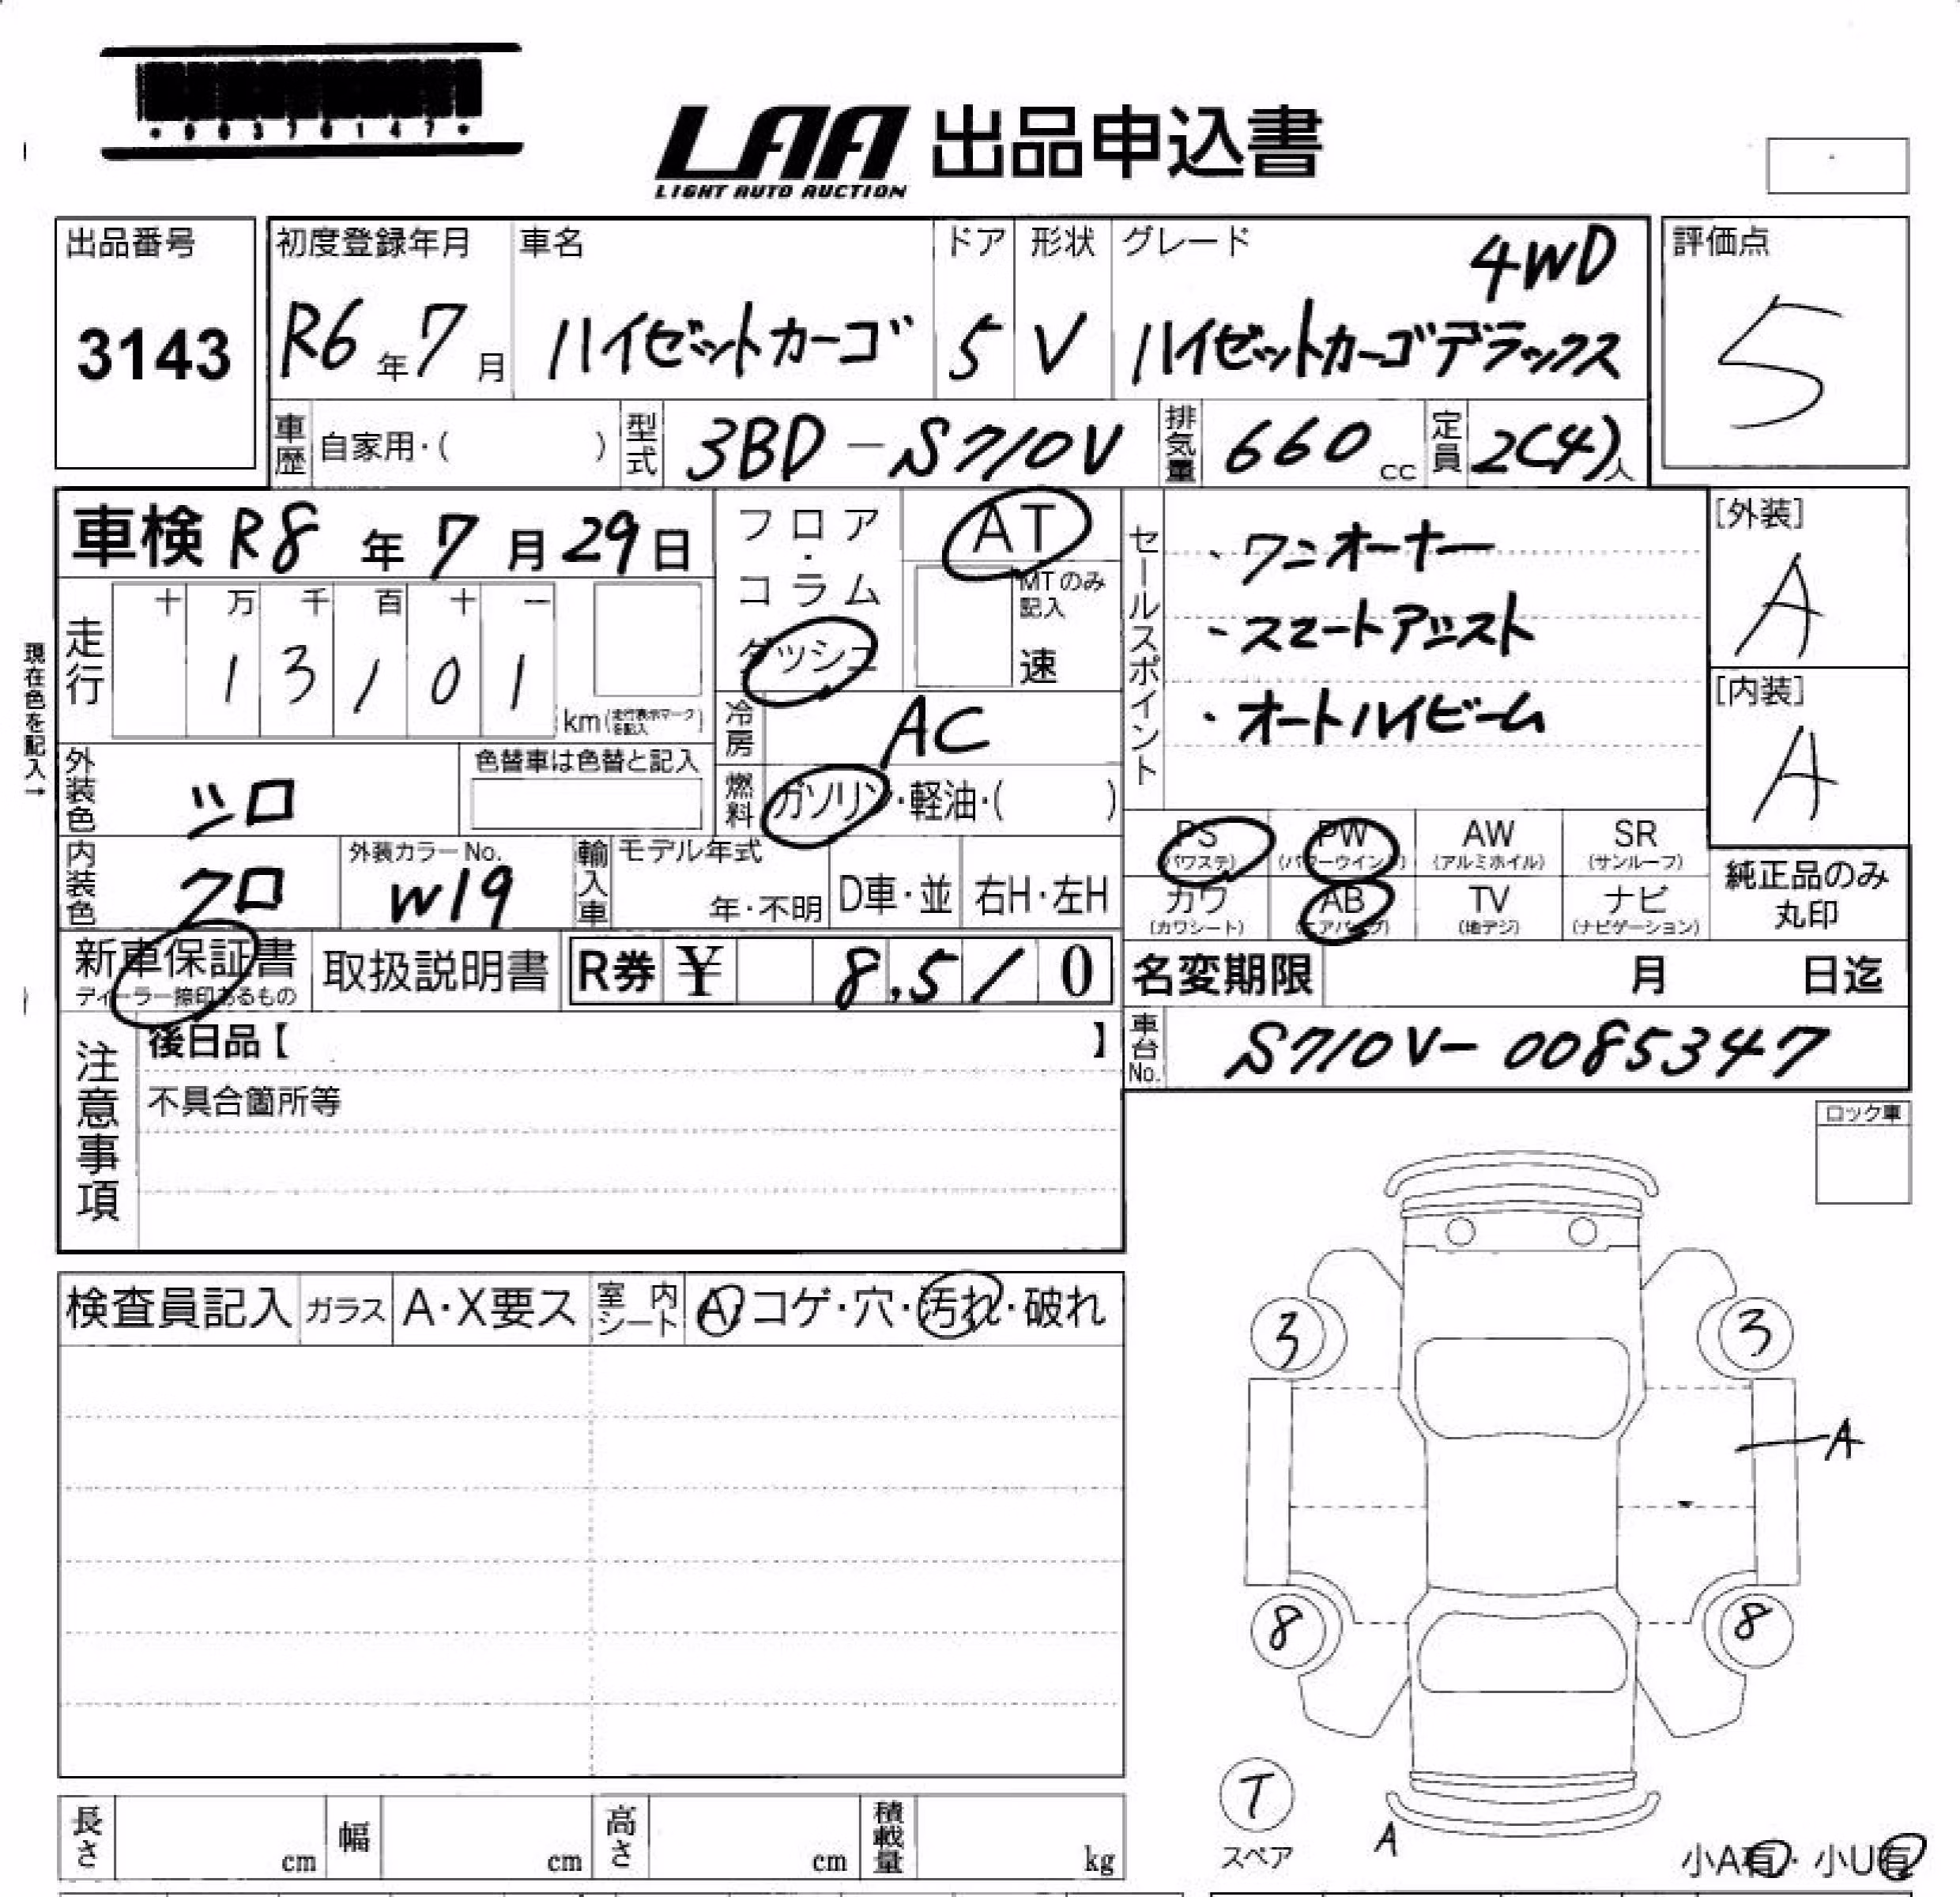 LAA 出品申込書
LIGHT AUTO AUCTION
出品番号
3143
初度登録年月
R6年7月
車名
ハイゼットカーゴ
ドア
5
形状
V
グレード
4WD
ハイゼットカーゴデラックス
評価点
5
車歴 自家用・( )
型式 3BD-S710V
排気量 660cc
定員 2(4)人
車検 R8年7月29日
現在色を記入→
走行
十 万 千 百 十 一
1 3 1 0 1
km(走行表示マークを記入)
フロア・コラム
ダッシュ
AT
MTのみ記入
速
冷房 AC
燃料 ガソリン・軽油・( )
外装色 シロ
色替車は色替と記入
内装色 クロ
外装カラーNo.
W19
輸入車 モデル年式
年・不明
D車・並
右H・左H
セールスポイント
・ワンオーナー
・スマートアシスト
・オートハイビーム
[外装]
A
[内装]
A
PS (パワステ)
PW (パワーウインド)
AW (アルミホイル)
SR (サンルーフ)
カワ (カワシート)
AB (エアバッグ)
TV (地デジ)
ナビ (ナビゲーション)
純正品のみ丸印
新車保証書
ディーラー捺印あるもの
取扱説明書
R券 ¥ 8,510
名変期限 月 日迄
車台No. S710V-0085347
注意事項
後日品【 】
不具合箇所等
ロック車
検査員記入 ガラス A・X要ス 室内シート A・コゲ・穴・汚れ・破れ
3
3
A
8
8
T
スペア
A
小A有・小U有
長さ cm 幅 cm 高さ cm 積載量 kg